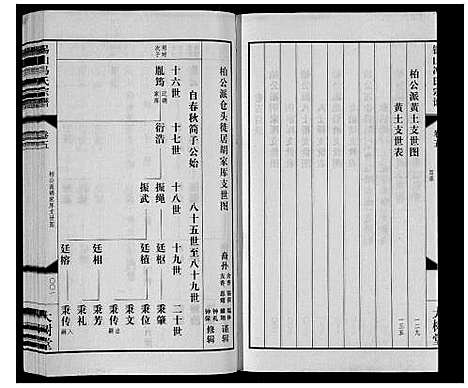 柏公派黄土支世图
一二九
黄土支世表
一三五
大树堂
柏公派仓头徒居胡家厍支世图
裔孙
谨辑
修辑
自春秋简子公始
八十五世至八十九世
十六世
十七世
十八世
十九世
二十世
胤筠
衍浩
振绳
廷枢
秉肇
廷植
秉传
秉文
振武
廷相
秉芳
秉礼
廷榕
秉传
卷五
〇〇一
大树堂